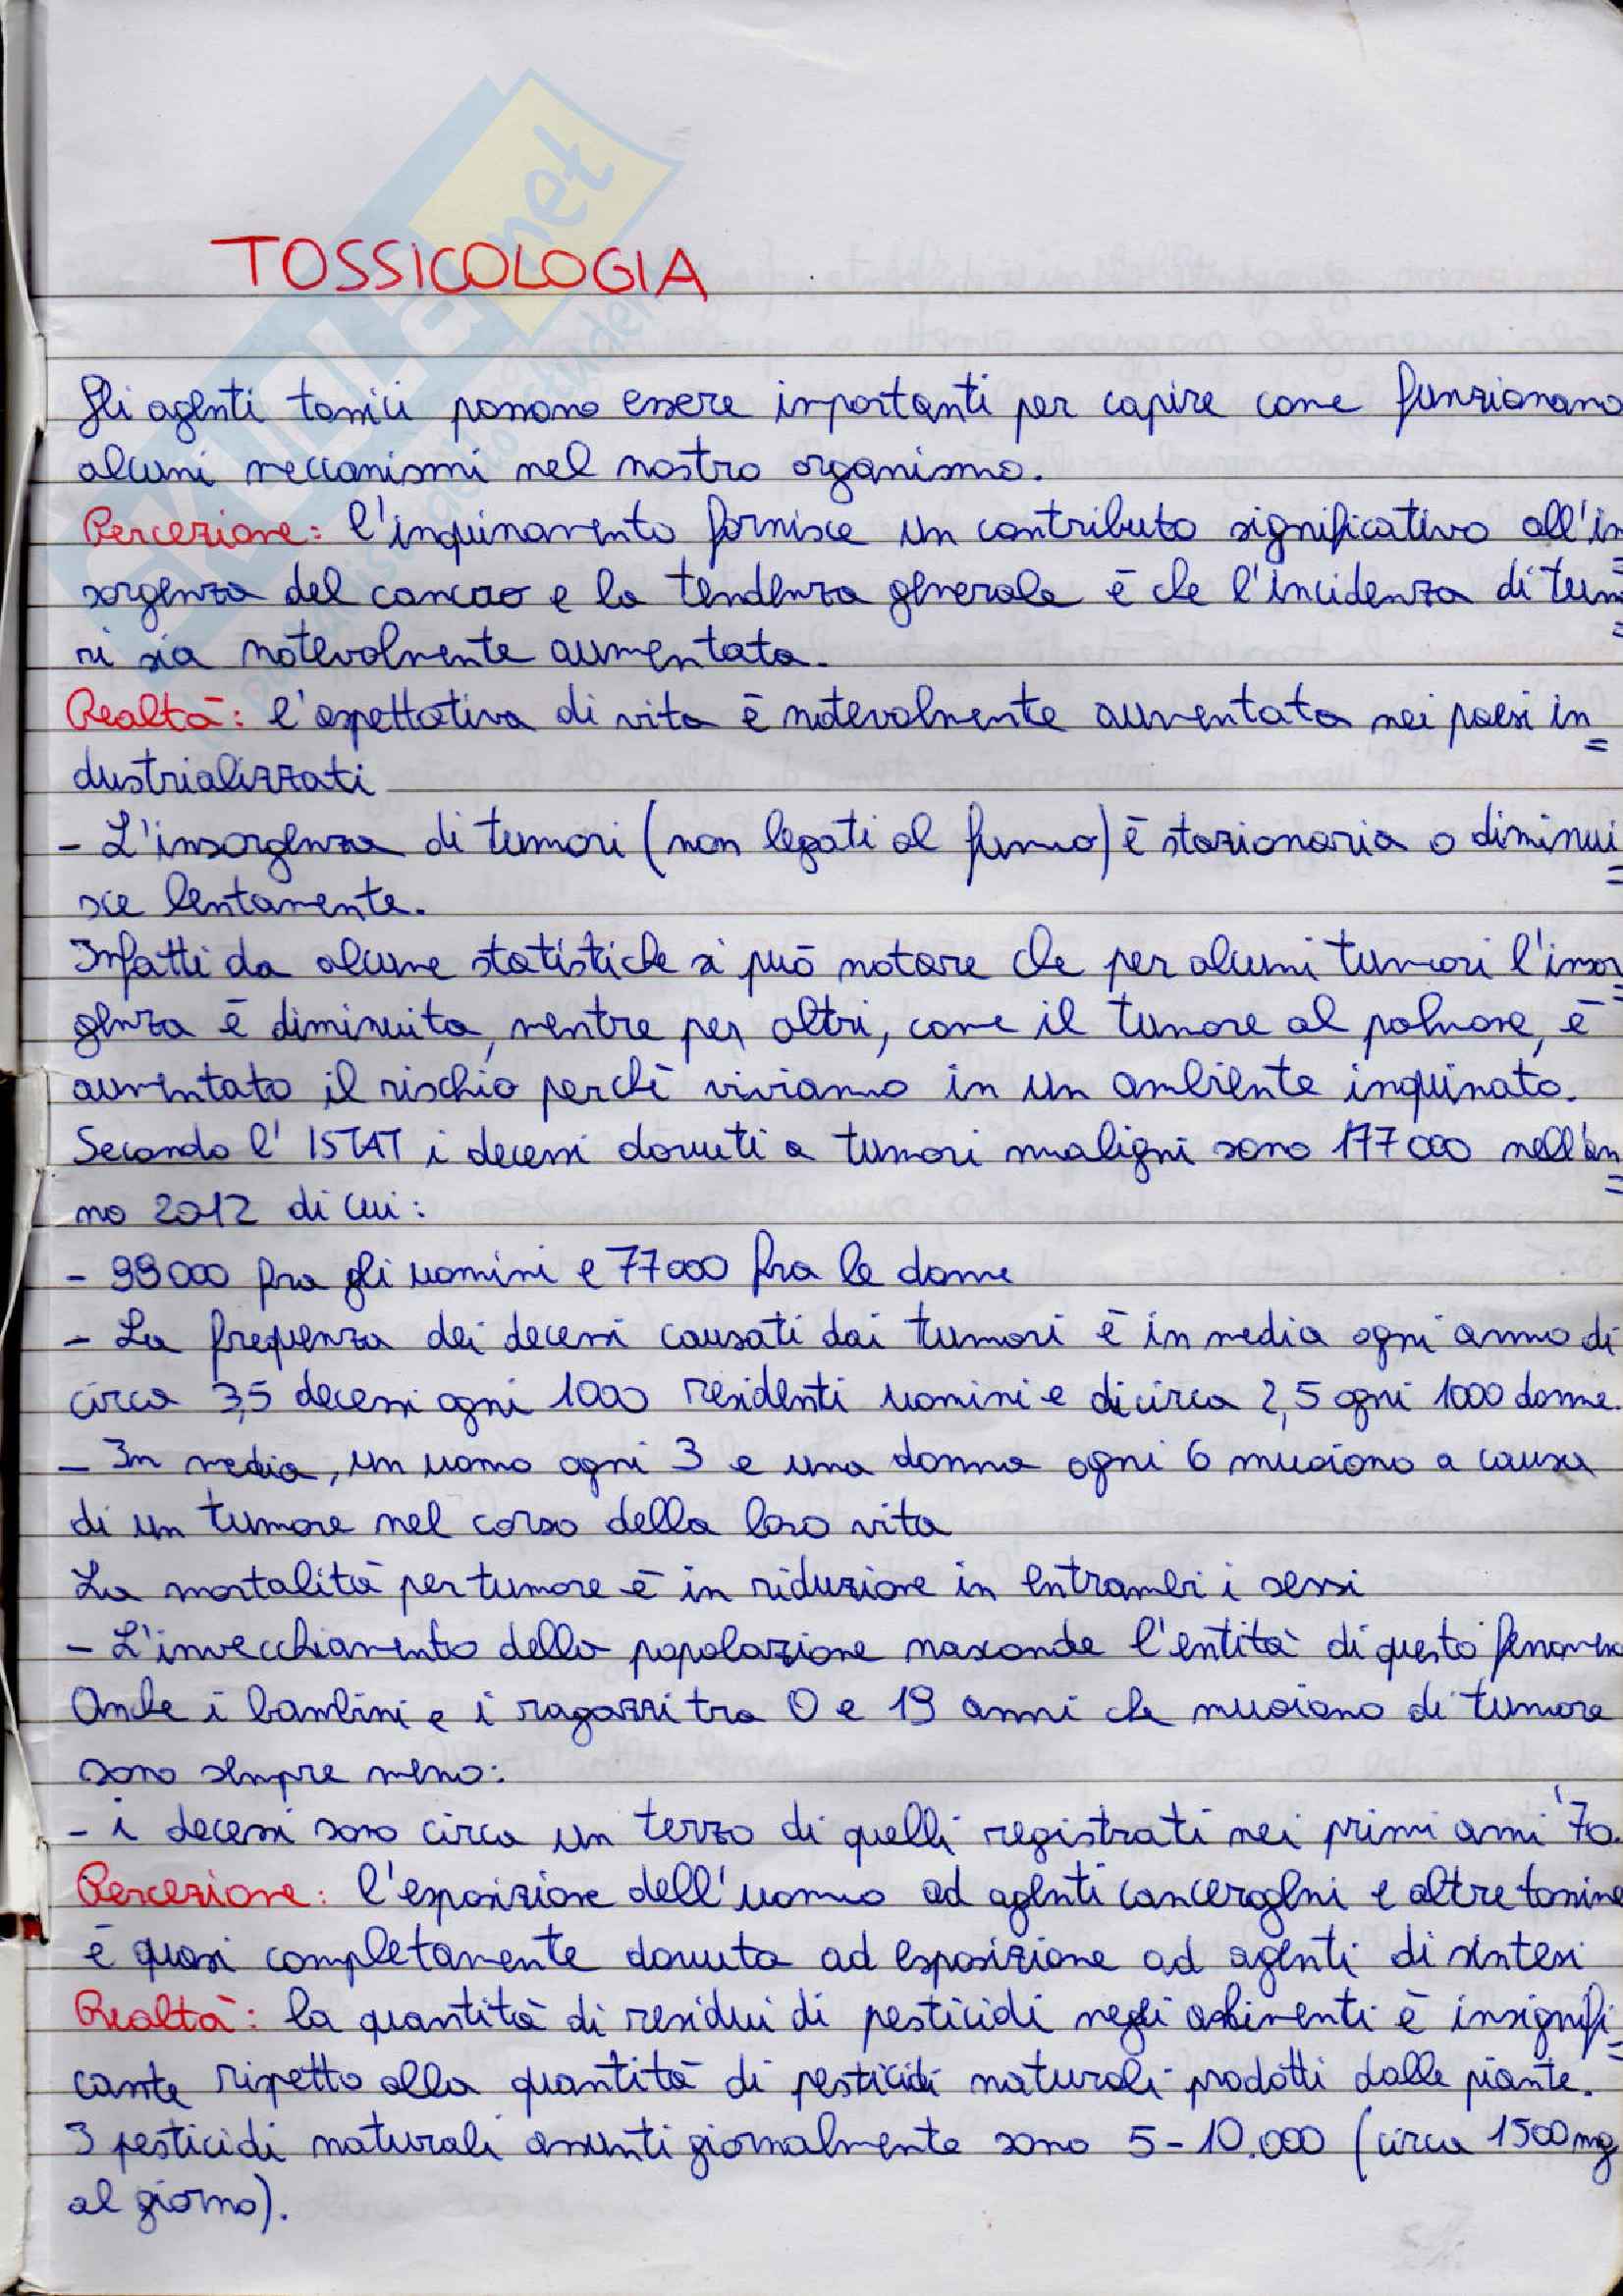 SKUOLA.net
TOSSICOLOGIA
Gli agenti tossici possono essere importanti per capire come funzionano
alcuni meccanismi nel nostro organismo.
Percezione: l'inquinamento fornisce un contributo significativo all'in
sorgenza del cancro e la tendenza generale è che l'incidenza di tumo
ri sia notevolmente aumentata.
Realtà: l'aspettativa di vita è notevolmente aumentata nei paesi in
dustrializzati
- L'insorgenza di tumori (non legati al fumo) è stazionaria o diminui
sce lentamente.
Infatti da alcune statistiche si può notare che per alcuni tumori l'insor
genza è diminuita, mentre per altri, come il tumore al polmone, è
aumentato il rischio perchè viviamo in un ambiente inquinato.
Secondo l'ISTAT i decessi dovuti a tumori maligni sono 177000 nell'an
no 2012 di cui:
- 99000 fra gli uomini e 77000 fra le donne
- La frequenza dei decessi causati dai tumori è in media ogni anno di
circa 3,5 decessi ogni 1000 residenti uomini e di circa 2,5 ogni 1000 donne.
- In media, un uomo ogni 3 e una donna ogni 6 muoiono a causa
di un tumore nel corso della loro vita
La mortalità per tumore è in riduzione in entrambi i sessi
- L'invecchiamento della popolazione nasconde l'entità di questo fenomeno
Anche i bambini e i ragazzi tra 0 e 19 anni che muoiono di tumore
sono sempre meno:
- i decessi sono circa un terzo di quelli registrati nei primi anni '70.
Percezione: l'esposizione dell'uomo ad agenti cancerogeni e altre tossine
è quasi completamente dovuta ad esposizione ad agenti di sintesi
Realtà: la quantità di residui di pesticidi negli alimenti è insignifi
cante rispetto alla quantità di pesticidi naturali prodotti dalle piante.
I pesticidi naturali assunti giornalmente sono 5-10.000 (circa 1500mg
al giorno).